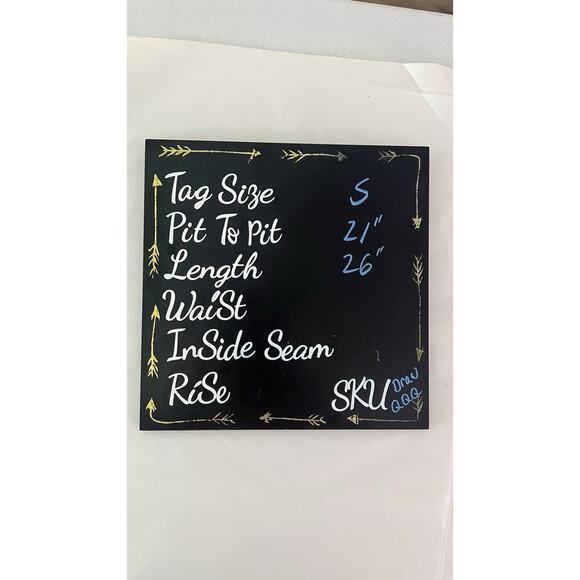 Tag Size S
Pit To Pit 21"
Length 26"
WaiSt
InSide Seam
RiSe
SKU Draw
QQQ